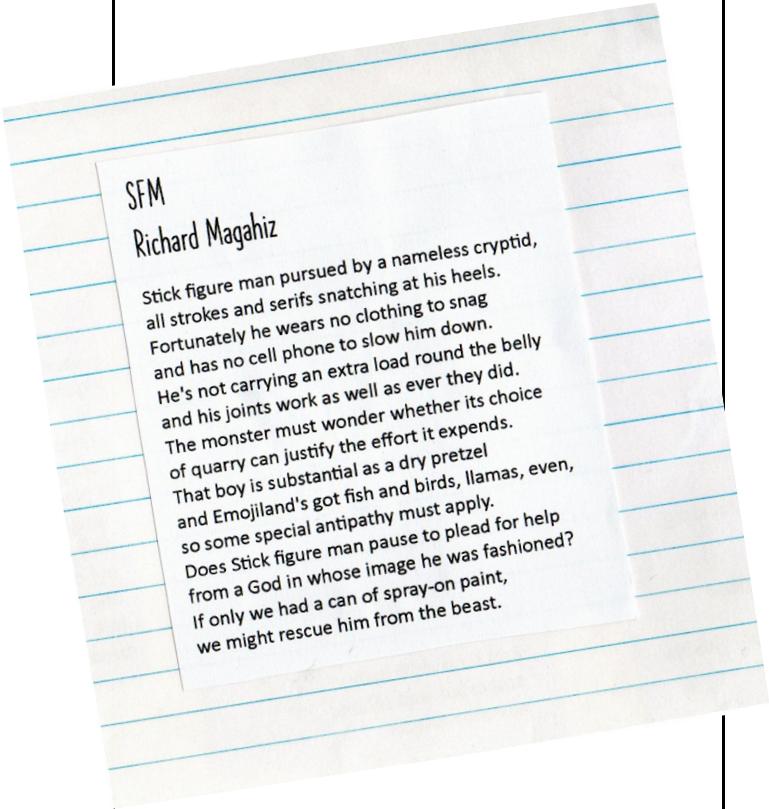 SFM
Richard Magahiz
Stick figure man pursued by a nameless cryptid,
all strokes and serifs snatching at his heels.
Fortunately he wears no clothing to snag
and has no cell phone to slow him down.
He's not carrying an extra load round the belly
and his joints work as well as ever they did.
The monster must wonder whether its choice
of quarry can justify the effort it expends.
That boy is substantial as a dry pretzel
and Emojiland's got fish and birds, llamas, even,
so some special antipathy must apply.
Does Stick figure man pause to plead for help
from a God in whose image he was fashioned?
If only we had a can of spray-on paint,
we might rescue him from the beast.